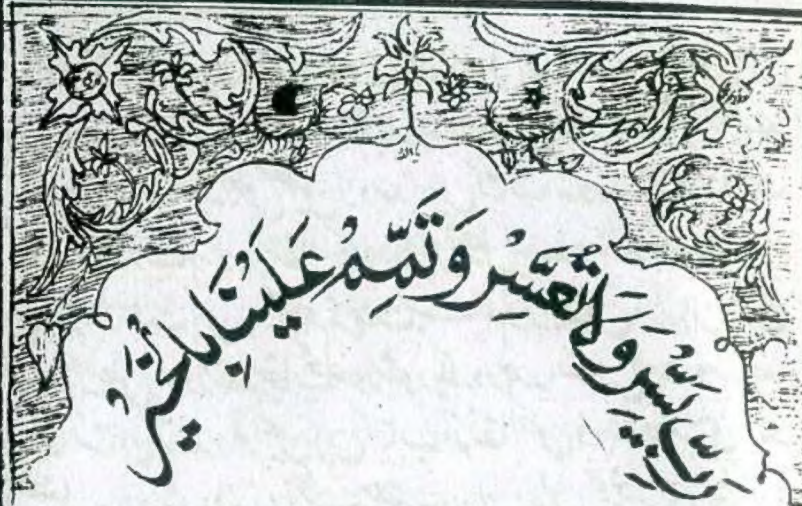 يَسِّرْ وَلَا تُعَسِّرْ وَتَمِّمْ عَلَيْنَا بِالْخَيْرِ